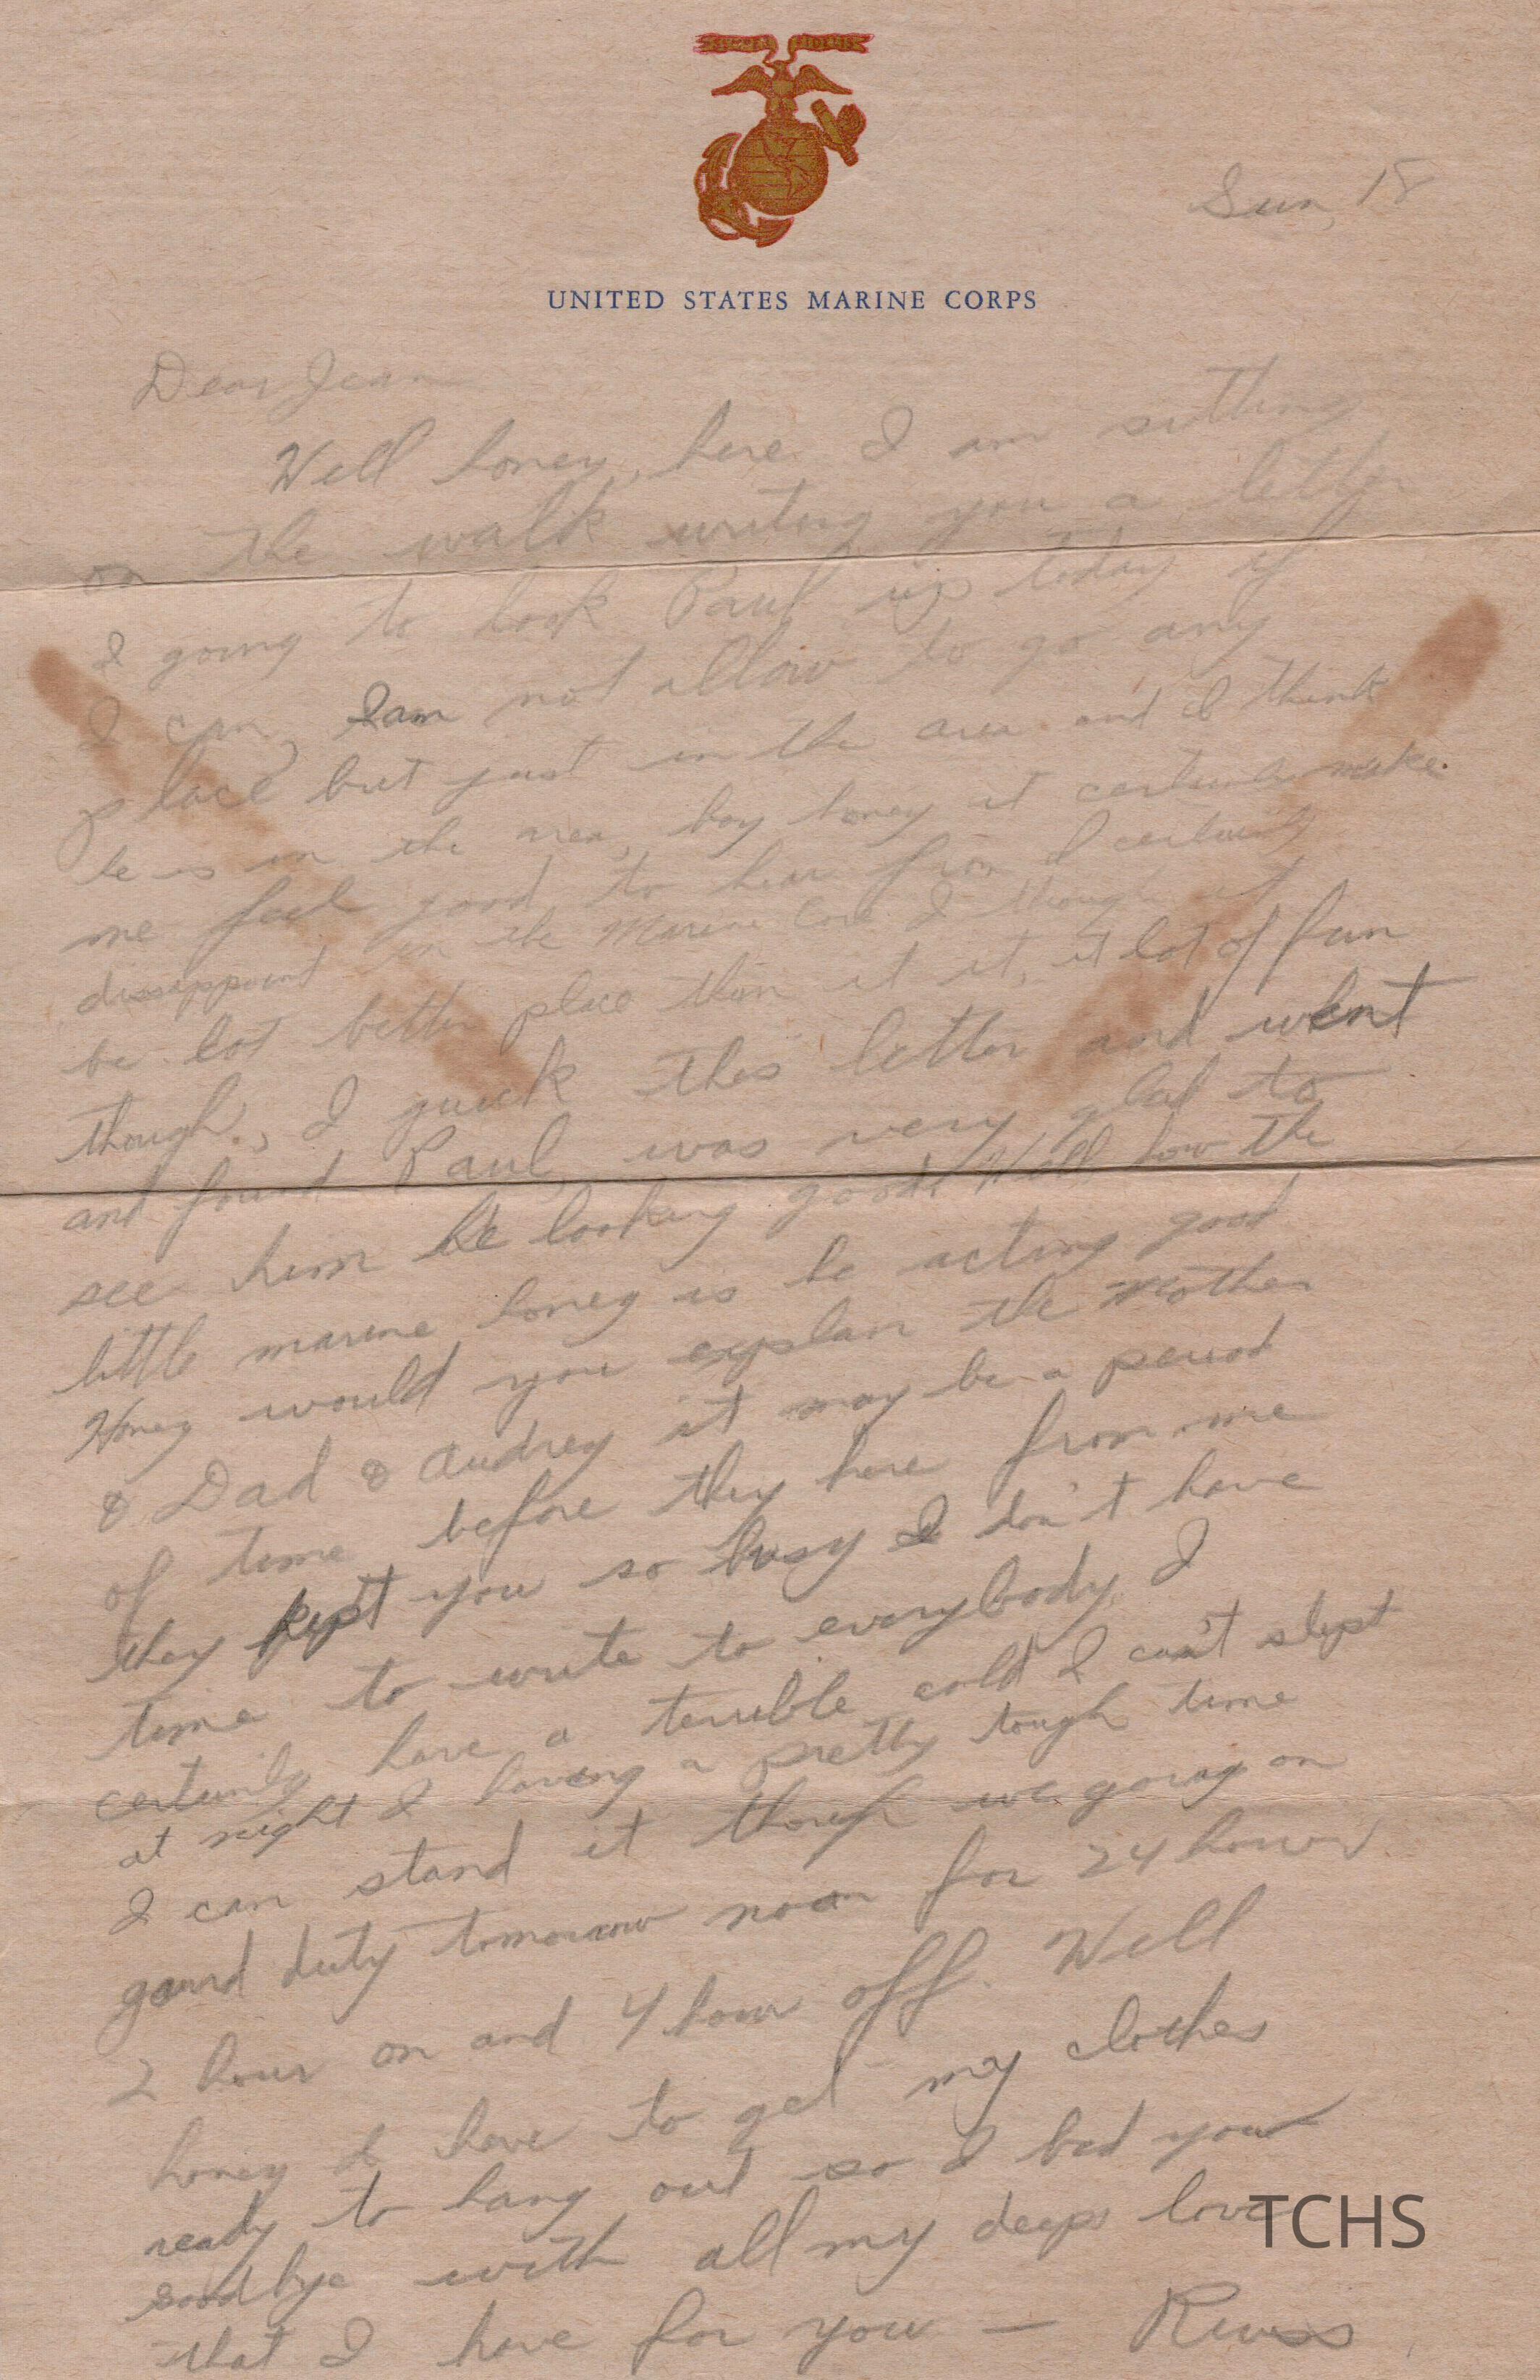 SEMPER FIDELIS
Sun, 18
UNITED STATES MARINE CORPS
Dear Jean
Well honey, here I am sitting
on the walk writing you a letter
I going to look Paul up today if
I can, I am not allow to go any
place but just in the area and I think
he is in the area, boy honey it certainly make
me feel good to hear from I certainly
disappoint in the Marine Core I though it
be lot better place than it it, it lot of fun
though., I quick this letter and went
and found Paul, was very glad to
see him he looking good. Well how the
little marine honey is he acting good
Honey would you explain the Mother
& Dad & Audrey it may be a period
of time before they here from me
they kept you so busy I don't have
time to write to everybody, I
certainly have a terrible cold I can't slept
at night I having a pretty tough time
I can stand it though we going on
guard duty tomorrow noon for 24 hours
2 hour on and 4 hour off. Well
honey I have to get my clothes
ready to hang out so I bid you
goodbye with all my deeps love
that I have for you — Russ
TCHS